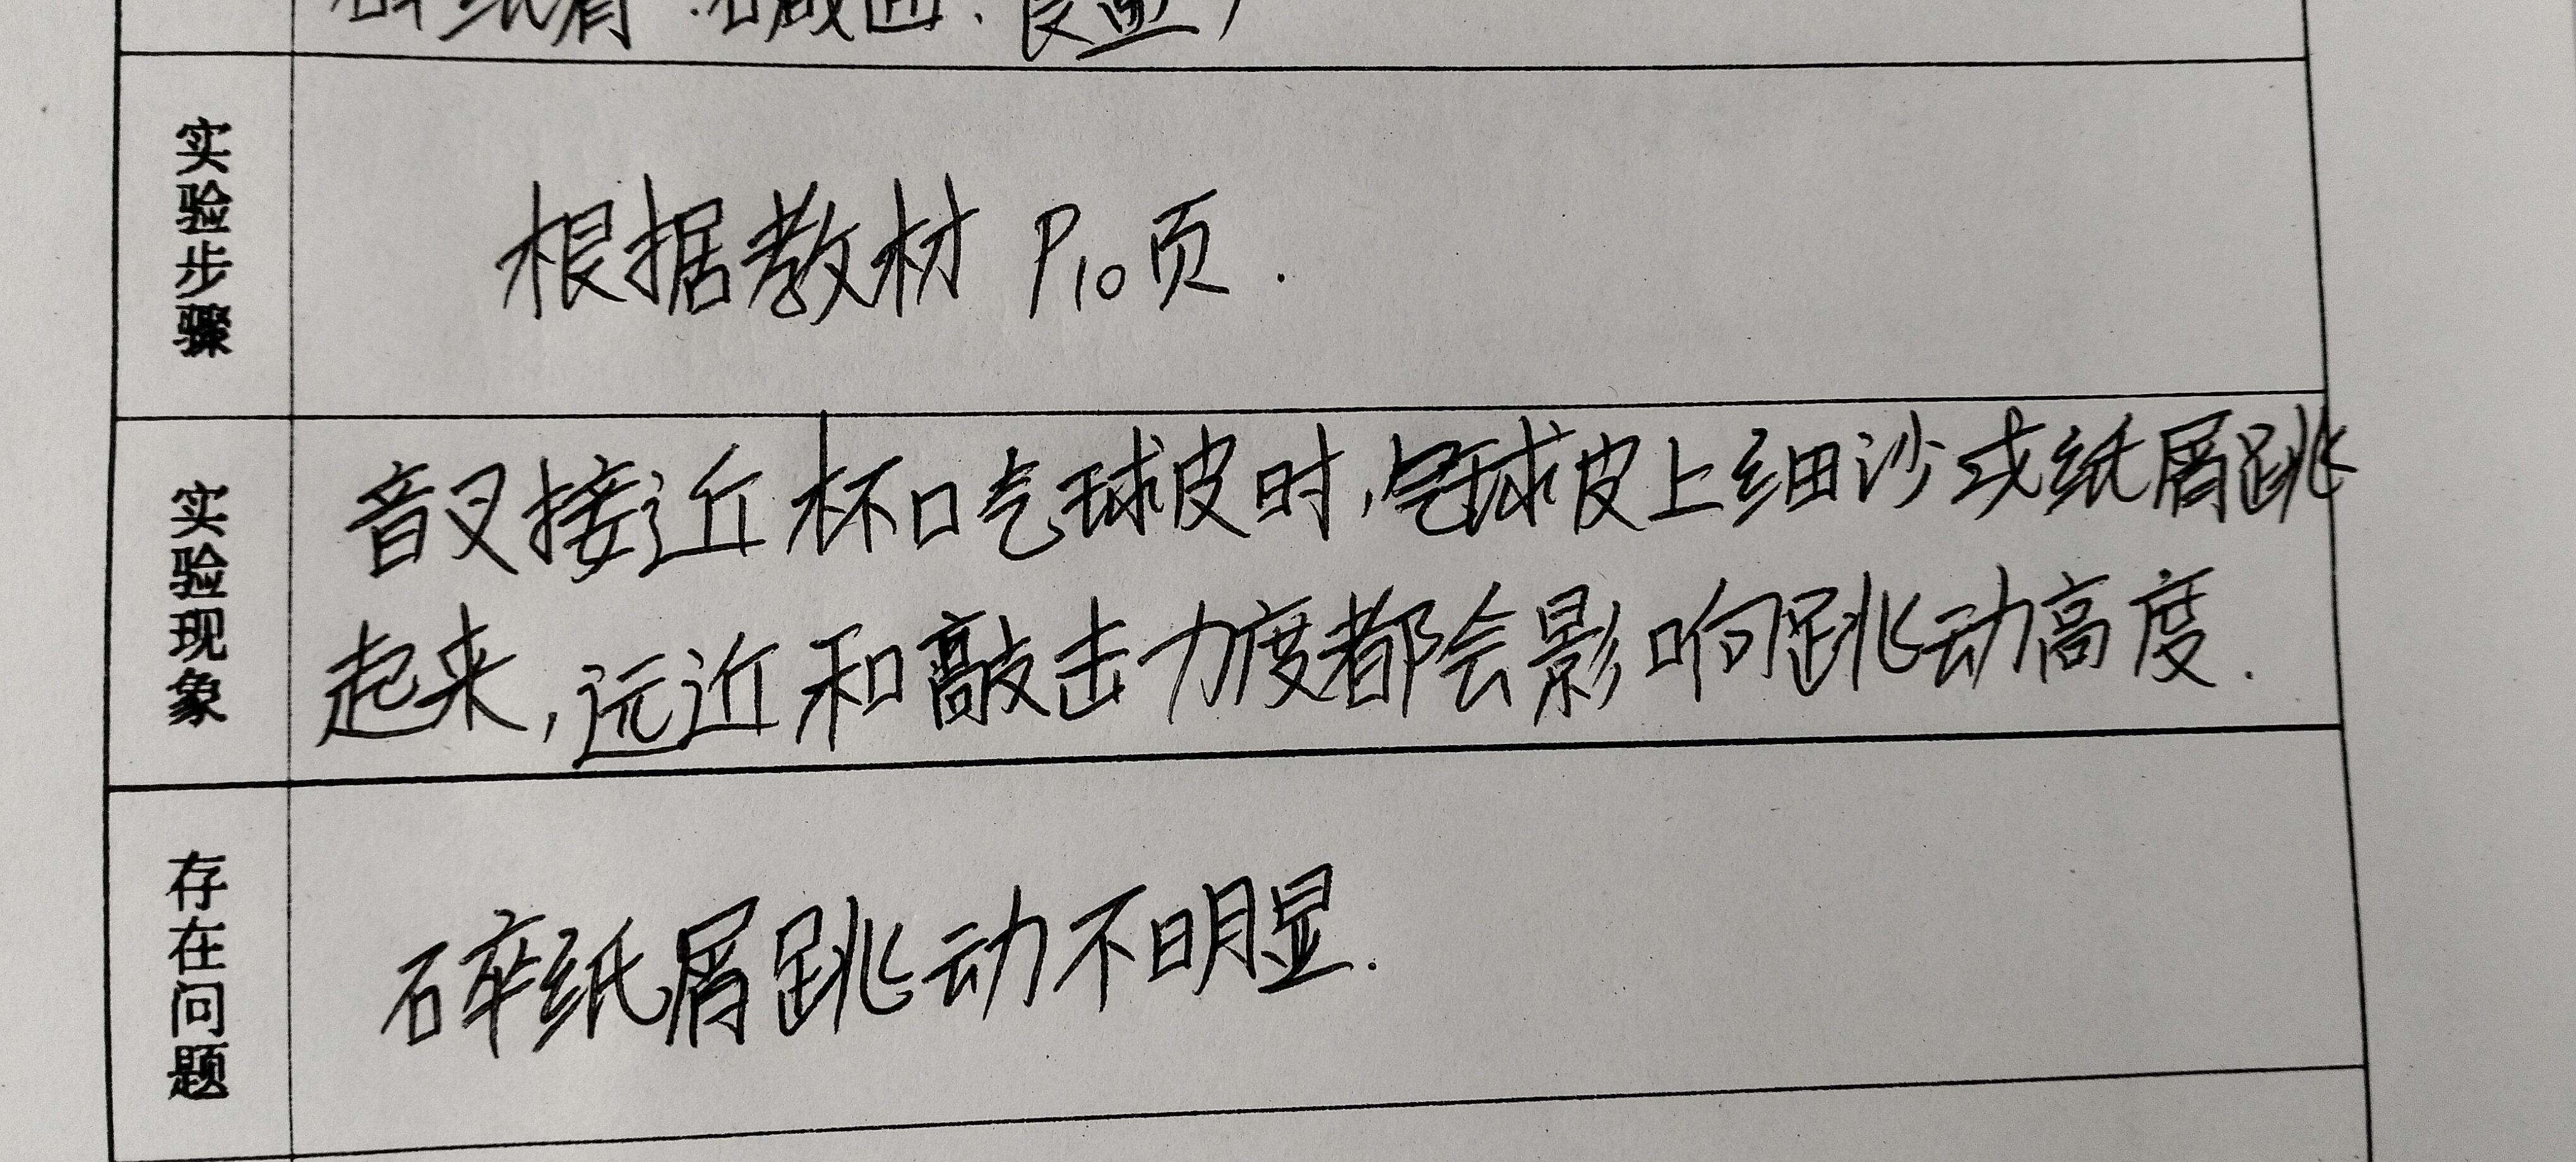 碎纸屑
实验步骤
根据教材 P10页.
实验现象
音叉接近杯口气球皮时,气球皮上细沙或纸屑跳
起来,远近和敲击力度都会影响跳动高度.
存在问题
碎纸屑跳动不明显.